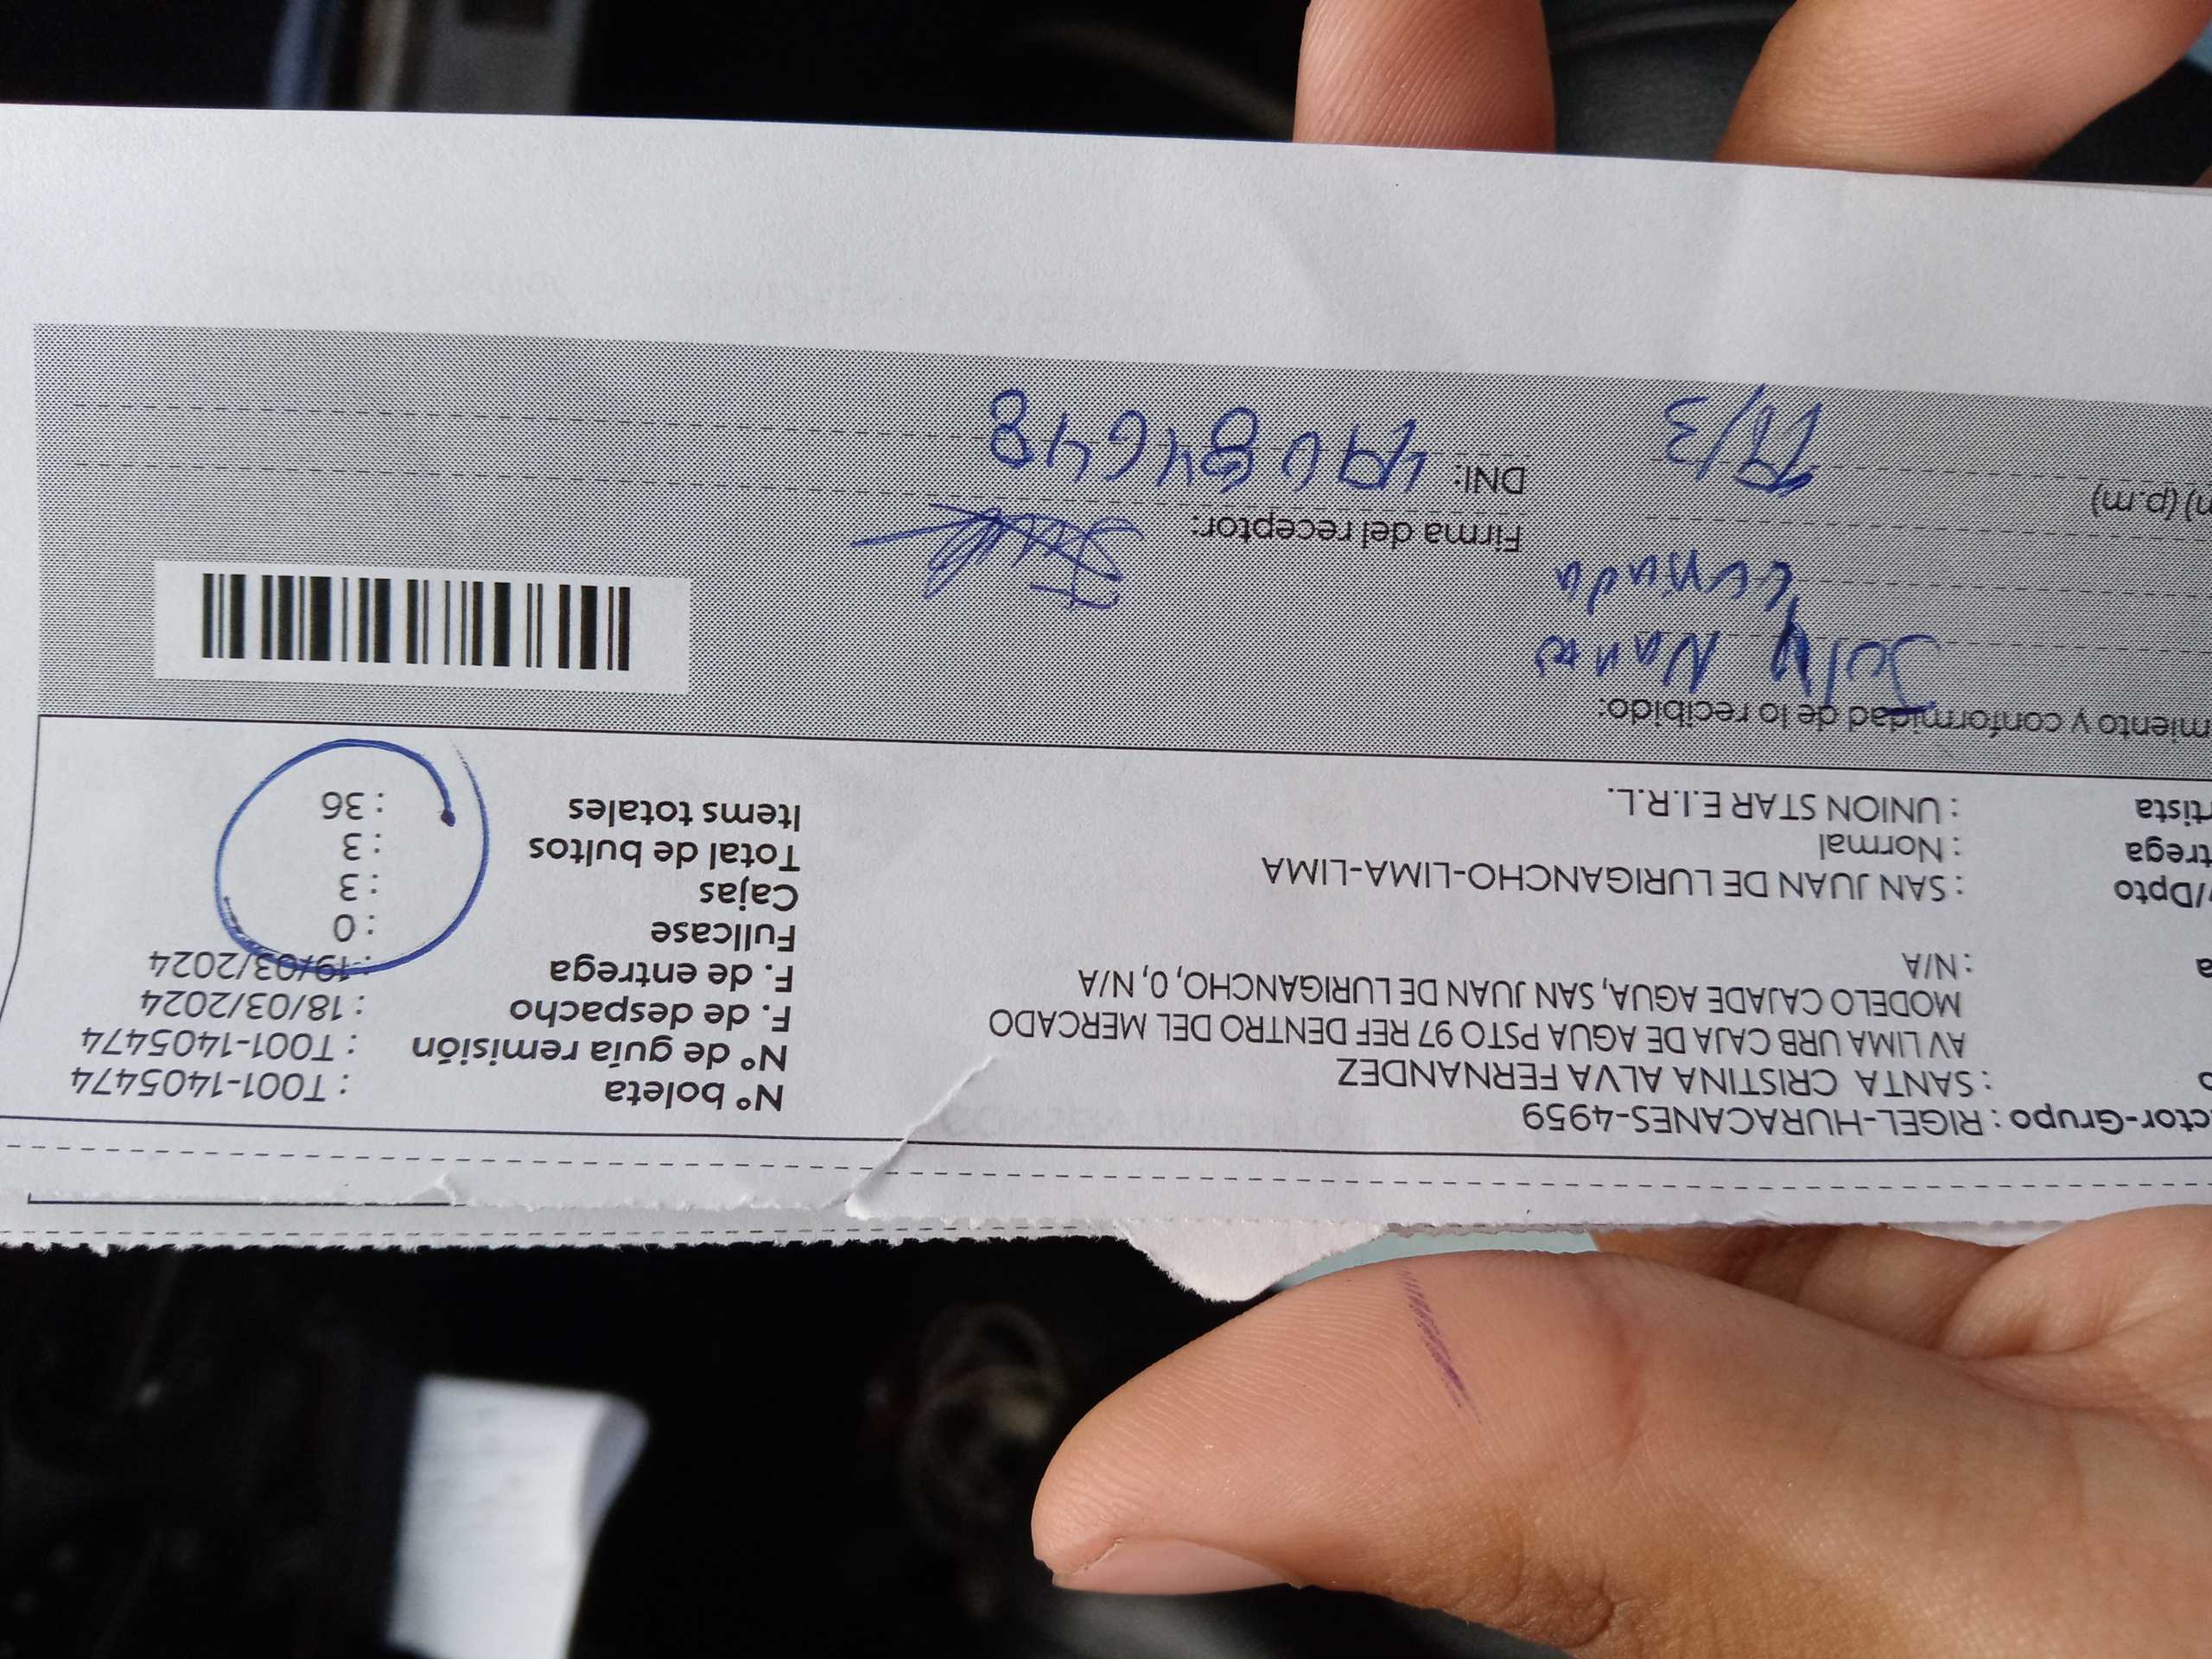 ctor-Grupo : RIGEL-HURACANES-4959
: SANTA CRISTINA ALVA FERNANDEZ
AV LIMA URB CAJA DE AGUA PSTO 97 REF DENTRO DEL MERCADO
MODELO CAJADE AGUA, SAN JUAN DE LURIGANCHO, 0, N/A
a : N/A
/Dpto : SAN JUAN DE LURIGANCHO-LIMA-LIMA
trega : Normal
rtista : UNION STAR E.I.R.L.
Nº boleta : T001-1405474
Nº de guía remisión : T001-1405474
F. de despacho : 18/03/2024
F. de entrega : 19/03/2024
Fullcase : 0
Cajas : 3
Total de bultos : 3
Items totales : 36
miento y conformidad de lo recibido:
July
Firma del receptor:
n) (p.m) 19/3
DNI: